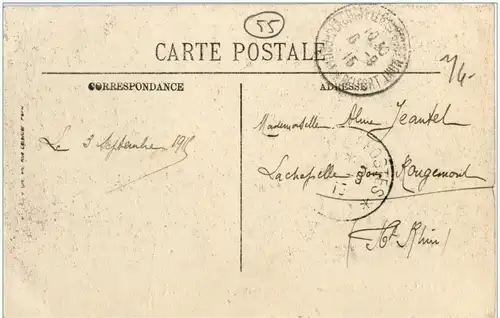 55
CARTE POSTALE
CORRESPONDANCE
ADRESSE
Le 3 Septembre 1915
Mademoiselle Aline Jeantel
Lachapelle sous Rougemont
Ht Rhin